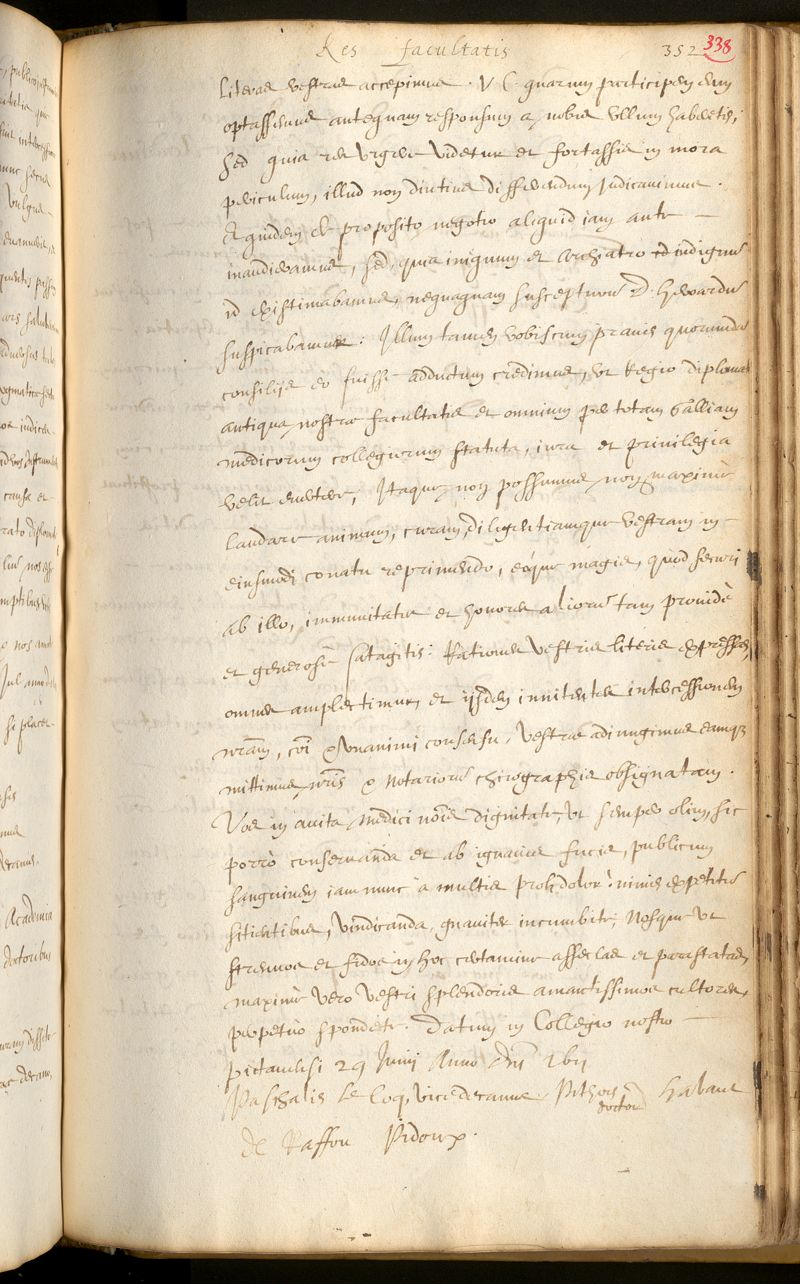 Res facultatis 352 338
literas vestras accepimus. V. C. quarum participem eum
optassemus antequam responsum a nobis ullum haberetis,
sed quia res urgere videtur et fortassis in mora
periculum, illud non diutius differendum judicavimus.
Et quidem de proposito negotio aliquid iam ante
inaudieramus, sed, quia iniquum et Archiatro indignum
id existimabamus, nequaquam suscepturum D. Heroardum
suspicabamur: Illum tamen vobiscum pravis quorundam
consilijs eo fuisse adductum credimus, ut Regio diplomate
antiqua nostrae facultatis et omnium per totam Galliam
medicorum collegiorum statuta, iura et privilegia
velit evertere, Itaque non possumus non maxime
laudare animum, curam, diligentiamque vestram in
eiusmodi conatu reprimendo, eoque magis, quod securi
ab illo, immunitatis et honoris aliorum tam providè
et generosè satagitis: Rationes vestris literis expressas,
omnes amplectimur, et ijsdem innitentes intercessionem
nram, coi et unanimi consensu, vestrae adiungimus eamq;
mittimus, nris et Notariorum chirographis obsignatam.
Vos in avita Medici nois dignitate, ut semper olim, sic
porrò conservanda et ab ignavis fucis, publicum
sanguinem iam nunc à multis proh dolor! nimis expetitum
sitientibus, vindicanda, gnaviter incumbite, Nosque ut
strenuos et fidos in hoc certamine asseclas et parastatas,
maxime vero vestri splendoris amantissimos cultores,
perpetuo spondete. Datum in Collegio nostro
pictaviensi 29 Junij Anno Dni 1611
Paschalis Le Coq, vicedecanus, Pithois doctor
de Raffou Pidoux.